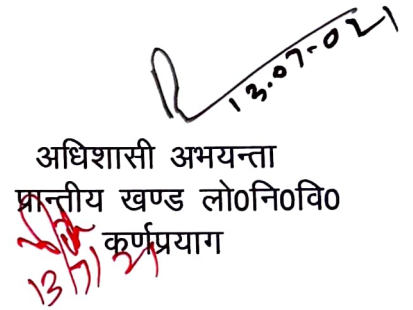 13.07-021
अधिशासी अभयन्ता
प्रान्तीय खण्ड लो0नि0वि0
कर्णप्रयाग
13/7/21